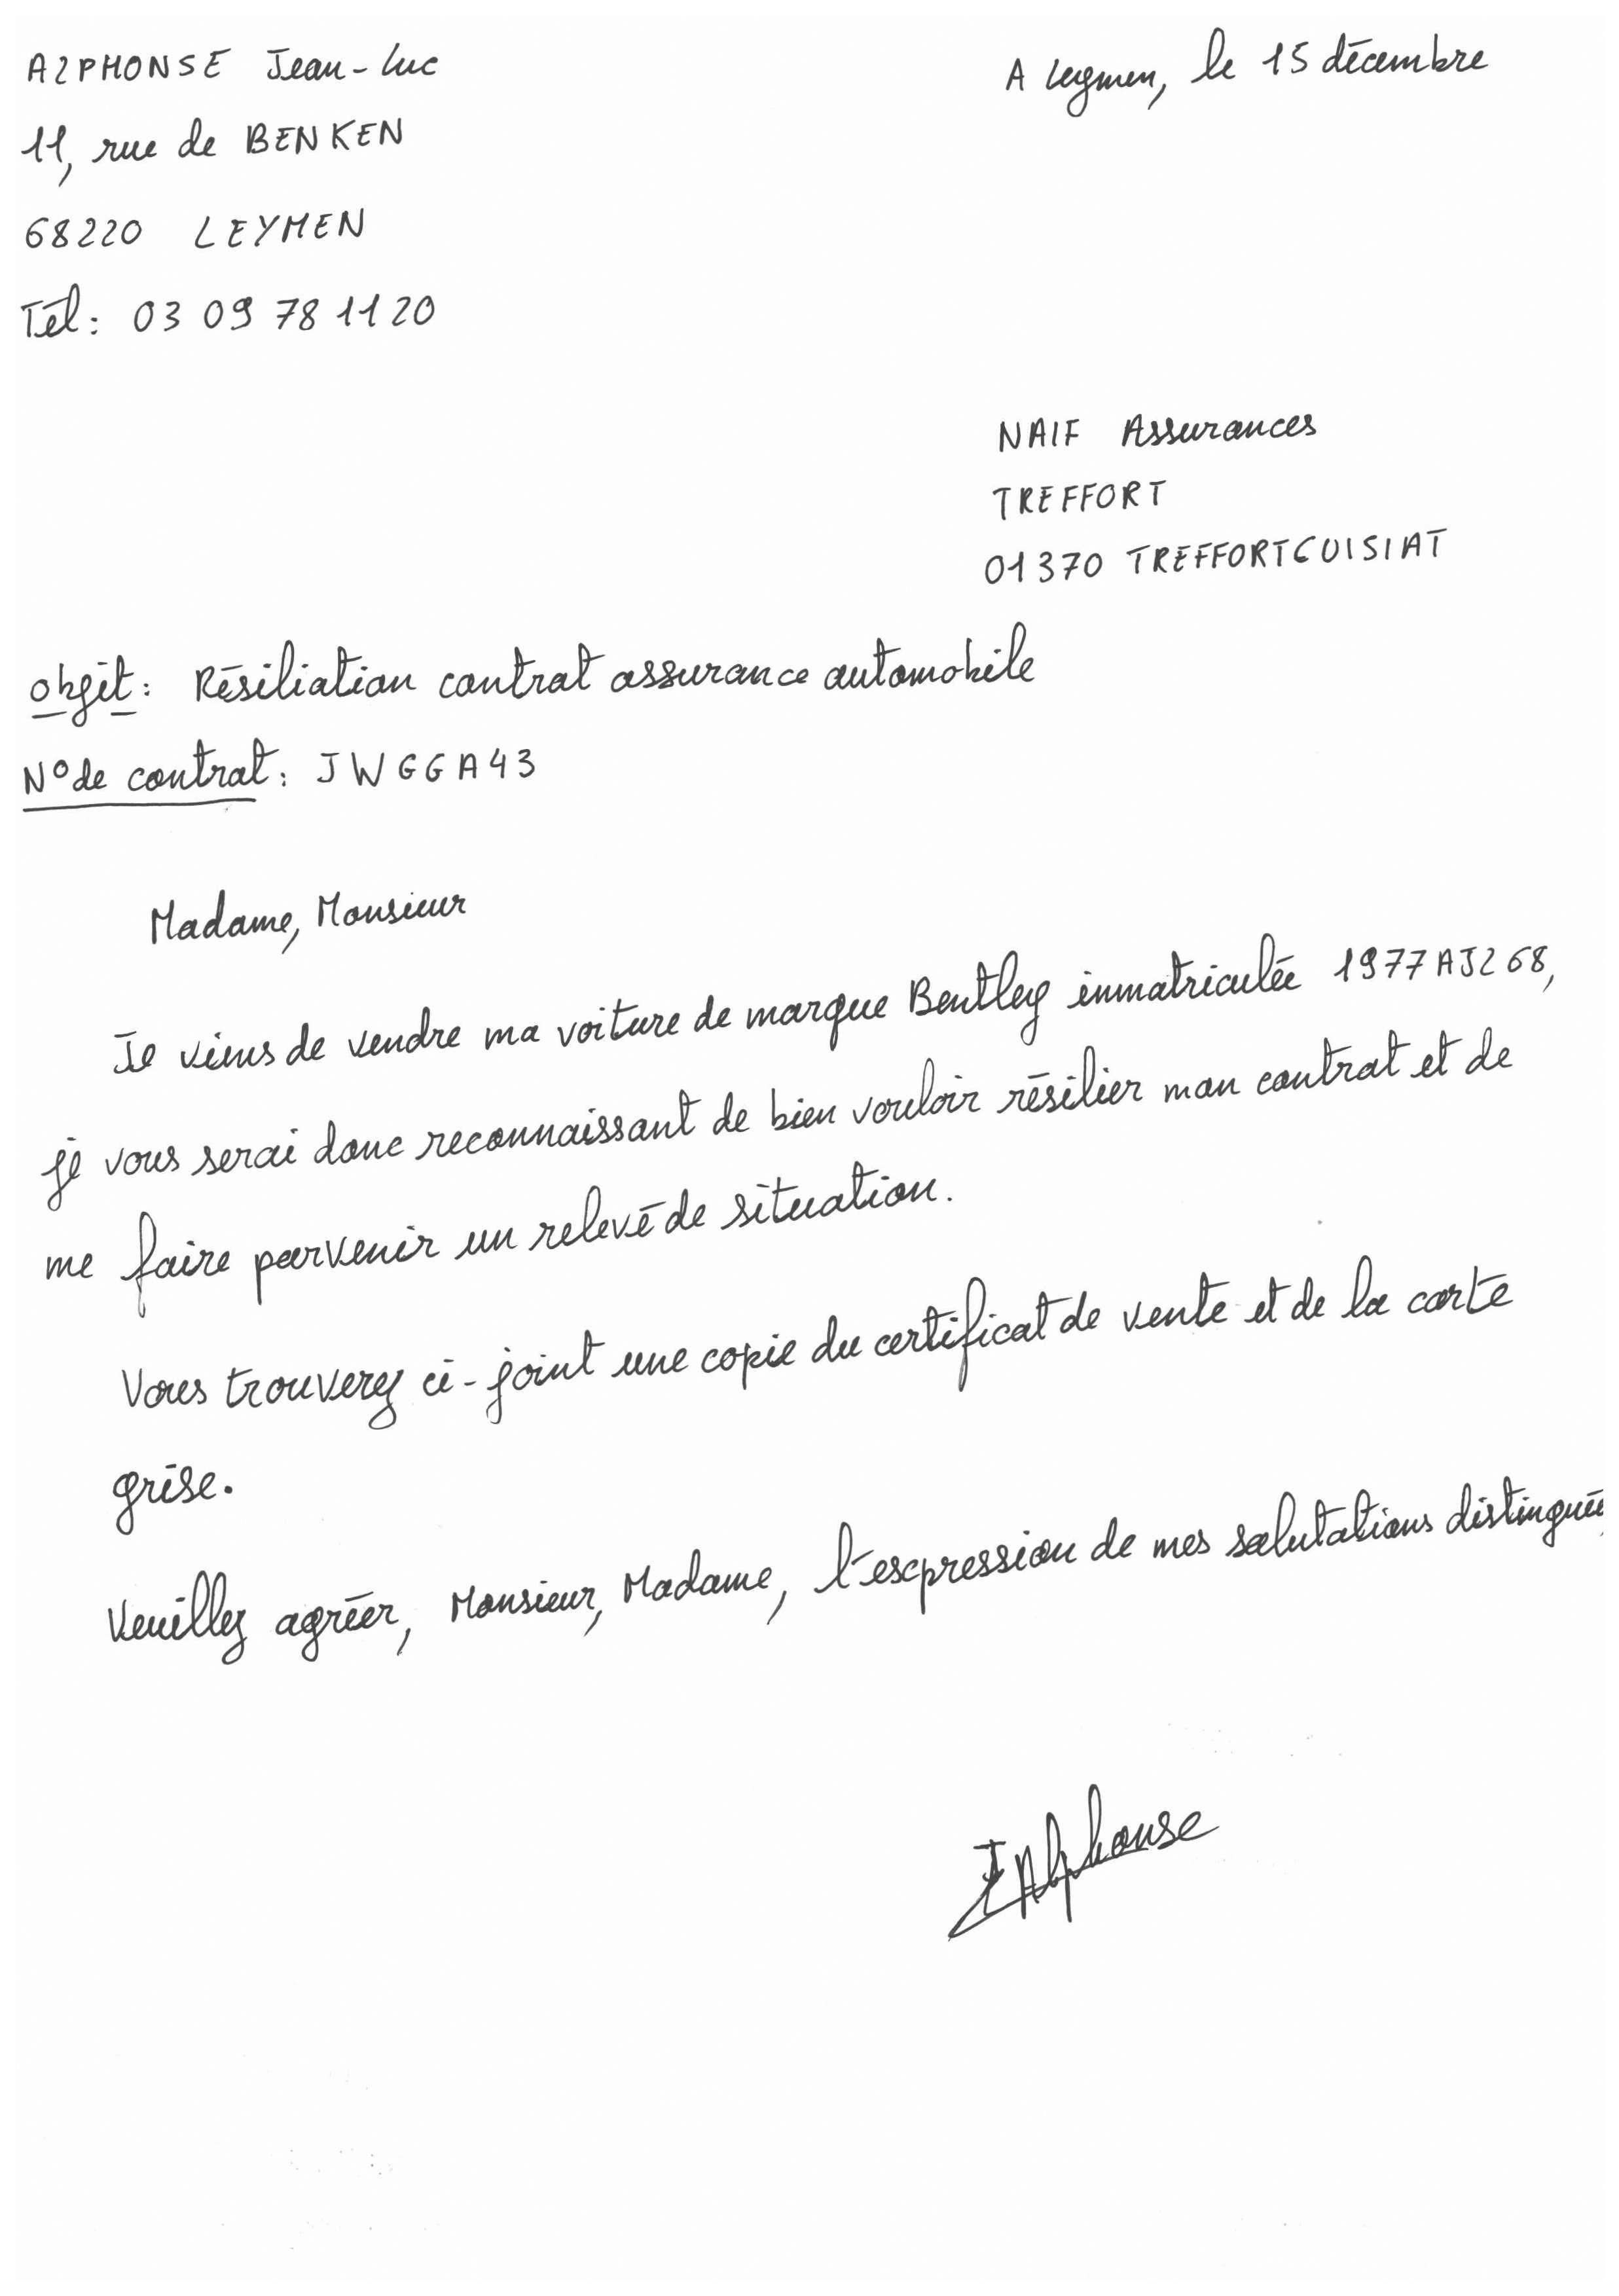 ALPHONSE Jean-Luc
A Leymen, le 15 décembre
11, rue de BENKEN
68220 LEYMEN
Tél: 03 09 78 11 20
NAIF Assurances
TREFFORT
01370 TREFFORTCUISIAT
Objet: Résiliation contrat assurance automobile
N° de contrat: JWGGA43
Madame, Monsieur
Je viens de vendre ma voiture de marque Bentley immatriculée 1977AJL68,
je vous serai donc reconnaissant de bien vouloir résilier mon contrat et de
me faire parvenir un relevé de situation.
Vous trouverez ci-joint une copie du certificat de vente et de la carte
grise.
Veuillez agréer, Monsieur, Madame, l'expression de mes salutations distinguée
JAlphonse